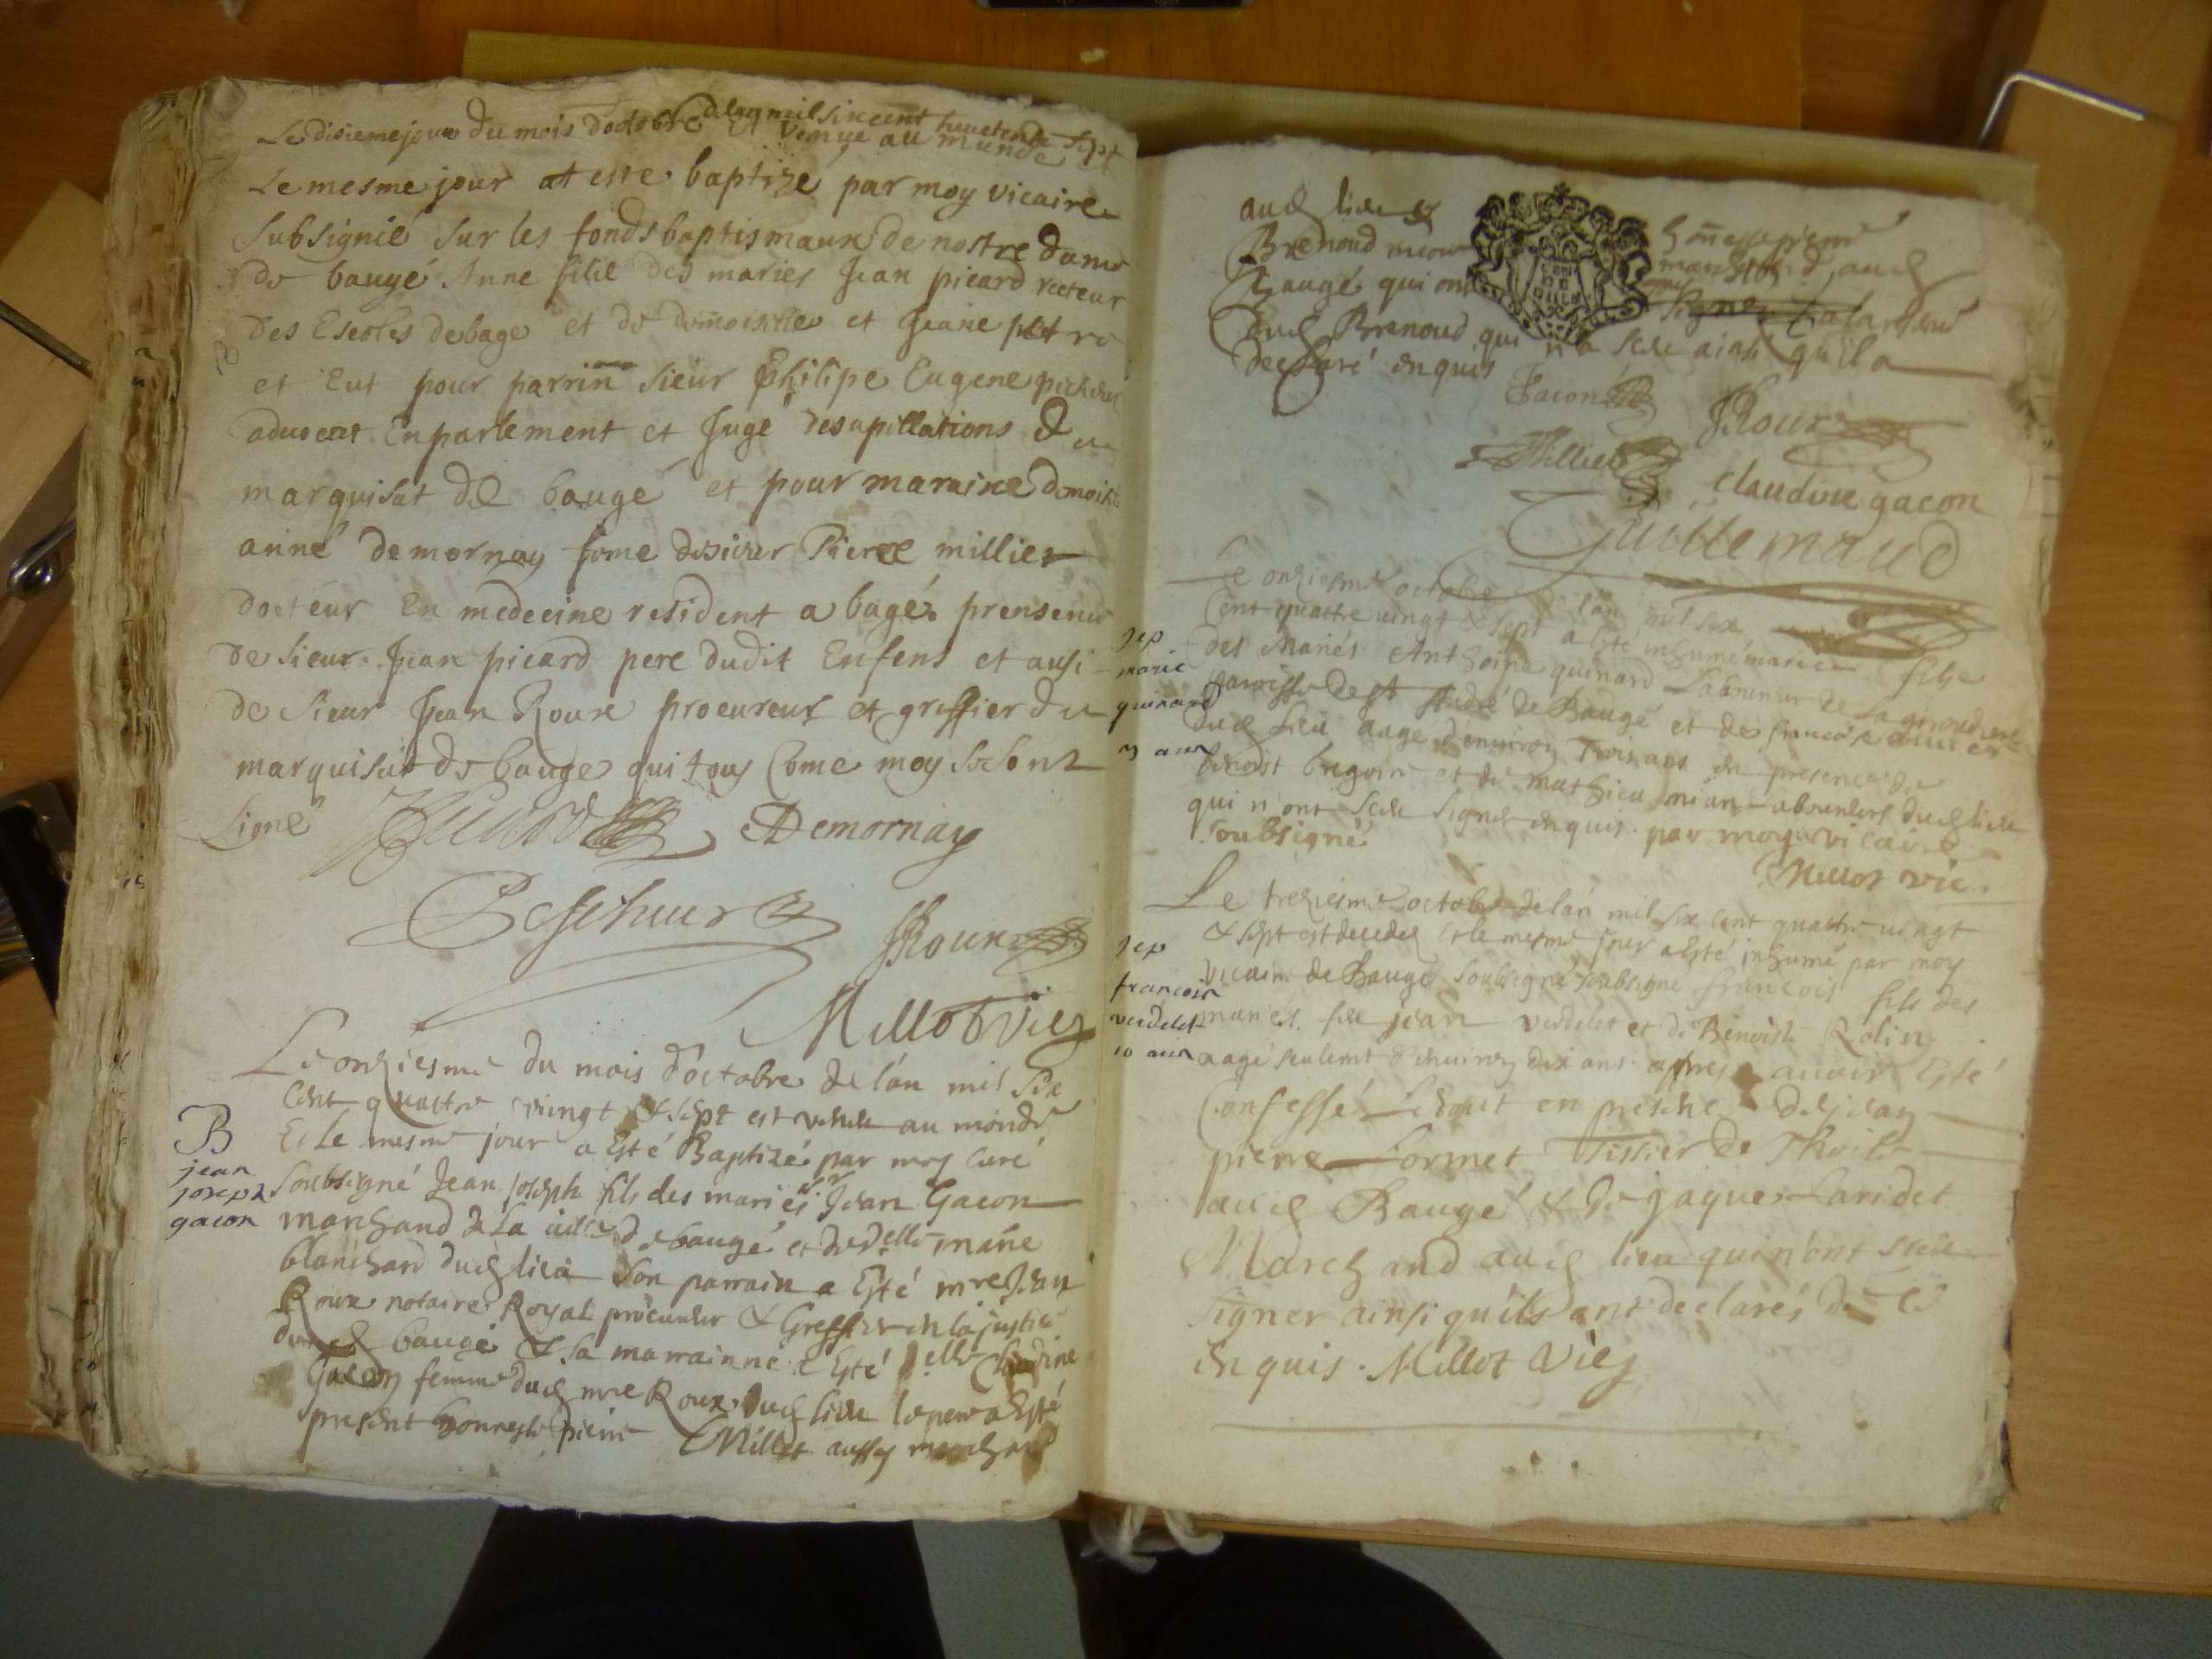 Le disieme jour du mois doctobre de lan mil sincent huictente sept
Et venue au munde et
Le mesme jour at este baptizé par moy vicaire
Subsignié sur les fonds baptismaux de nostre dame
de baugé Anne fillie des maries Jean picard recteur
des Escoles de bage et de domoiselle et Jeane
et Eut pour parrin sieur Philipe Eugene
aducat En parlement et Juge des apillations du
marquisat de baugé et pour maraine
anne demornay fome desieur Pierre millier
docteur En medecine resident a bagé prensence
de sieur Jean picard pere dudit Enfens et ausi
de sieur Jean Roux procureur et greffier du
marquisat de bauge qui tous Come moy se sont
Signé
Demornay
JRoux
Millot vic
B
jean
joseph
gacon
Le onziesme du mois d'octobre de lán mil six
Cent quattre vingt & sept est venu au monde
Et le mesme jour a Esté Baptizé par moy Curé
Soubsigné Jean joseph fils des mariés sr Jean Gacon
marchand de la ville de baugé et de delle
blanchard dud lieu Son parrain a Esté mre Jean
Roux notaire Royal procureur & Greffier en la justice
dud baugé & Sa marrainne a Esté delle Claudine
Gacon femme dud mre Roux dud lieu le pere a Esté
present honneste pierre Millet aussy marchand
aud lieu &
Brenoud
Baugé qui ont
marchand aud
dud Brenoud qui n'a sceu ainsi qu'il a
declaré enquis
Gacon
JRoux
Millier
claudine gacon
Guillemaud
sep
marie
guinard
3 ans
Le onziesme octobre de lán mil six
Cent quattre vingt & sept a Esté inhumé marie fille
des Mariés Anthoine guinard Laboureur de
parroisse de st André de Baugé et de
dud Lieu aagé d'enuiron trois ans en presence de
benoist et de mathieu laboureurs dud lieu
qui n'ont sceu signer enquis par moy vicaire
Soubsigné
Millot vic.
sep
francois
verdelet
10 ans
Le treziesme octobre de lán mil six cent quattre uingt
& sept est decedé et le mesme jour a Esté inhumé par moy
vicaire de Baugé Soubsigné soubsigne francois fils des
mariés jean verdelet et de Benoiste Rolin
aagé seulemt d'enuiron dix ans apres auoir Esté
Confessé Le tout en presence de jean
pierre Cormet Tissier de Thoile
aud Baugé & de jaque Laridet
Marchand aud lieu qui n'ont sceu
signer ainsi qu'ils ont declarés de ce
enquis. Millot vic